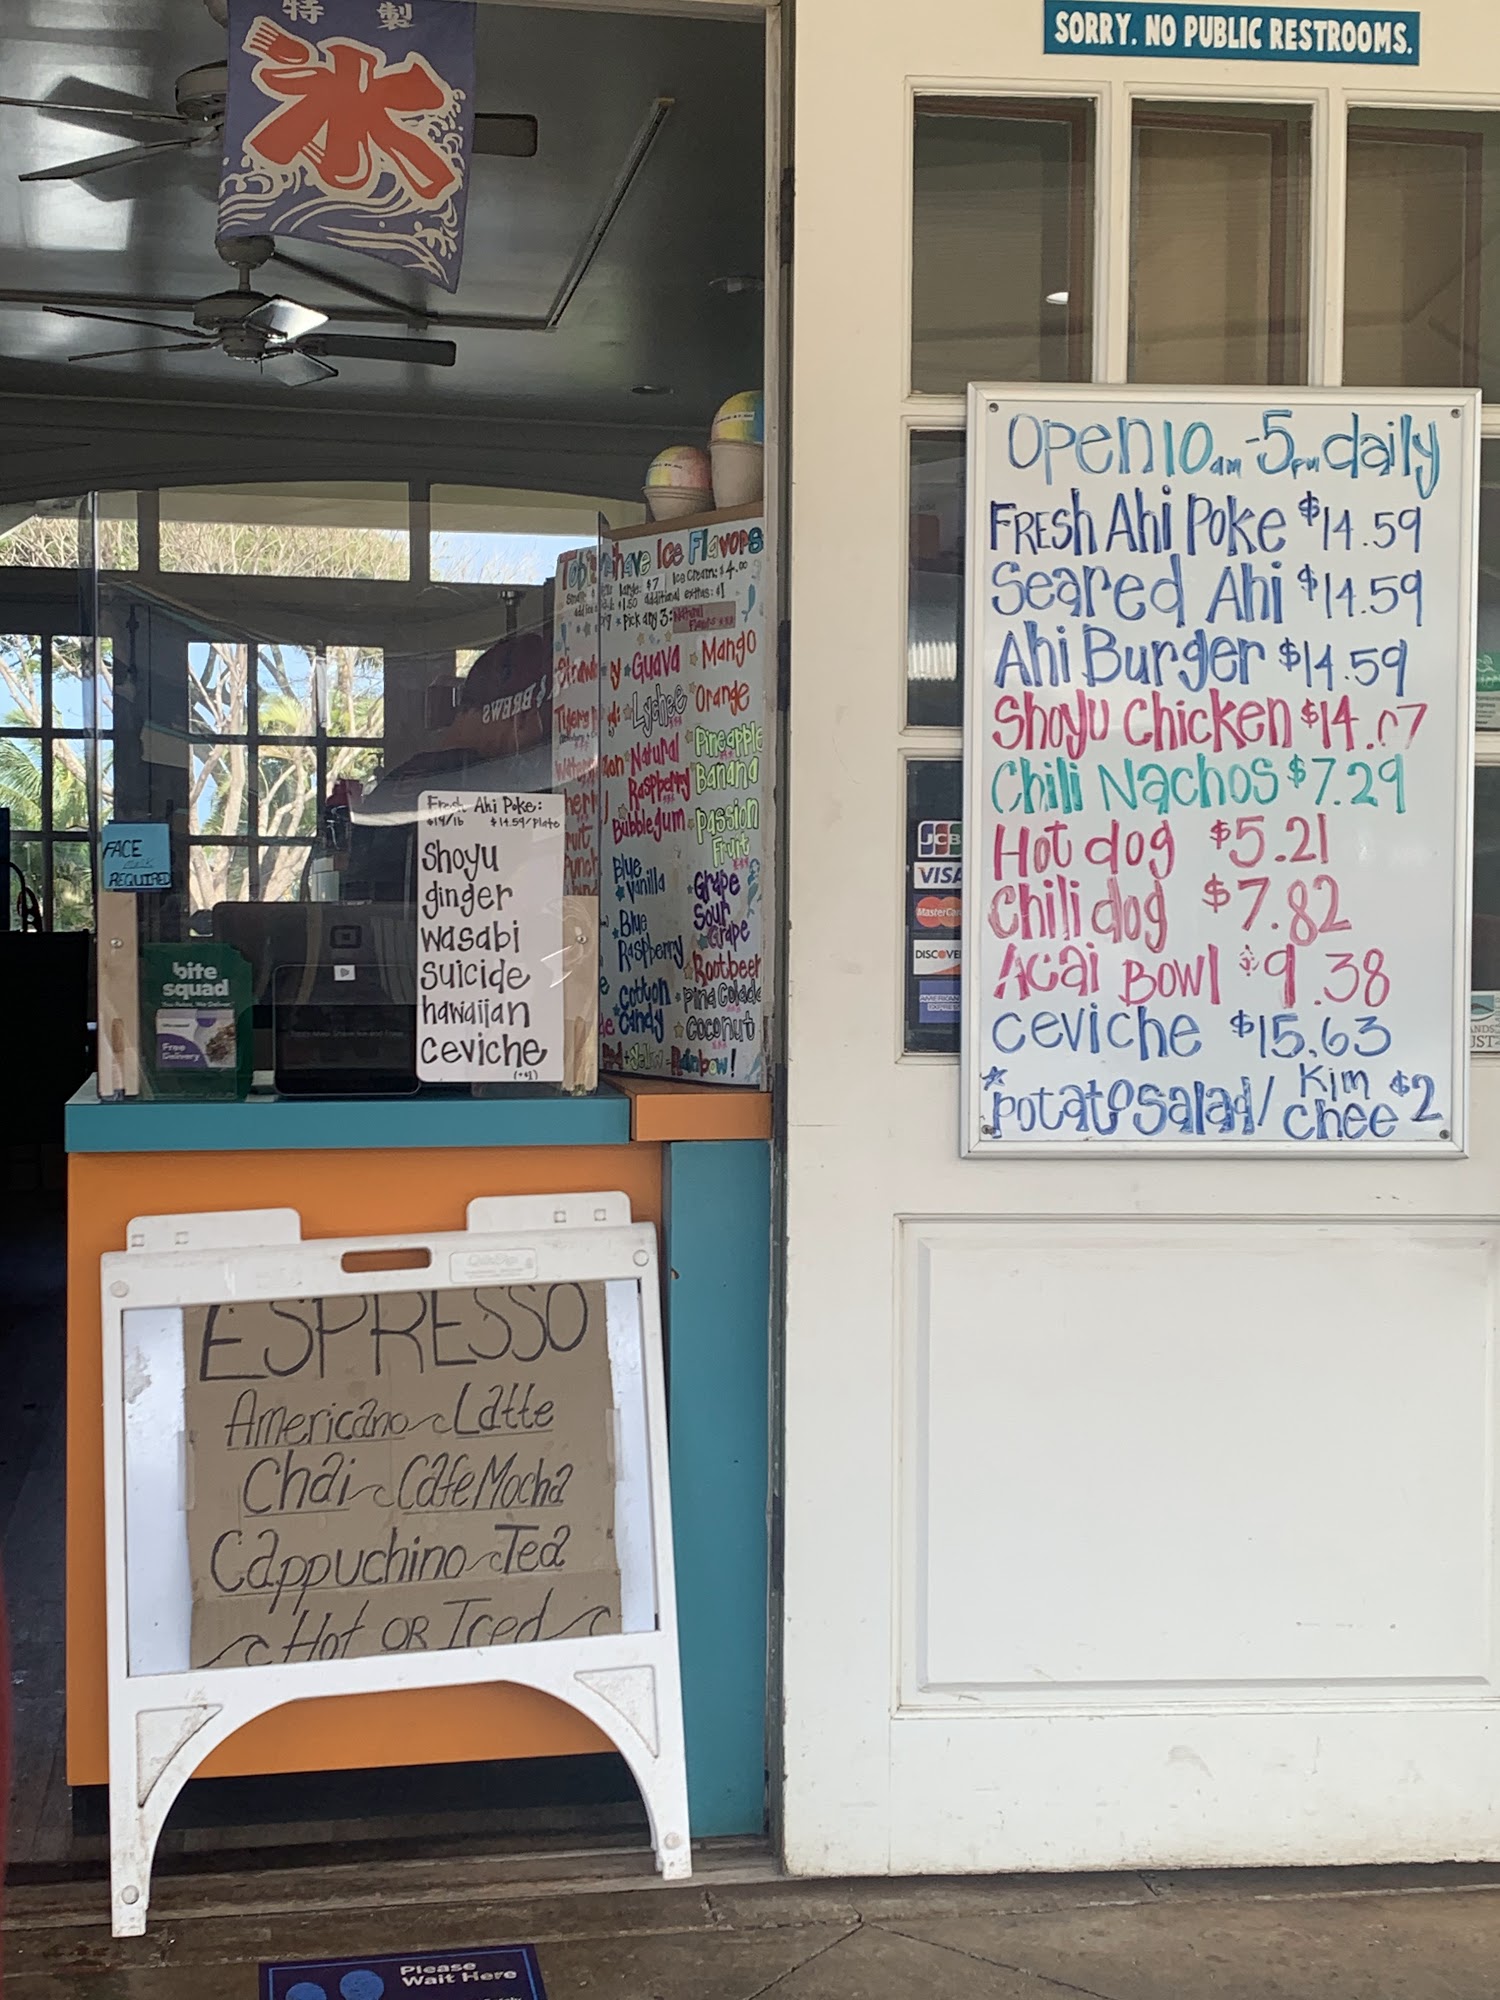 特製
氷
SORRY. NO PUBLIC RESTROOMS.
Open 10am-5pm daily
FRESH Ahi Poke $14.59
Seared Ahi $14.59
Ahi Burger $14.59
Shoyu Chicken $14.07
Chili Nachos $7.29
Hot dog $5.21
Chili dog $7.82
Acai Bowl $9.38
ceviche $15.63
*potato Salad/ Kim Chee $2
JCB
VISA
MasterCard
DISCOVER
AMERICAN EXPRESS
Shave Ice Flavors
large: $7 Ice Cream: $4.00
$1.50 additional extras: $1
* pick any 3: Natural
Guava
Mango
Lychee
Orange
Natural Raspberry
Pineapple
Banana
Bubblegum
Passion Fruit
Blue Vanilla
Grape
Sour Grape
Blue Raspberry
Rootbeer
Cotton Candy
Pina Colada
Coconut
Rainbow!
& BREWS
FACE
mask
REQUIRED
bite squad
Free Delivery
Fresh Ahi Poke:
$19/lb $14.59/plate
Shoyu
ginger
wasabi
suicide
hawaiian
ceviche
(+$1)
ESPRESSO
Americano ~ Latte
Chai ~ Cafe Mocha
Cappuchino ~ Tea
~ Hot OR Iced ~
Please
Wait Here